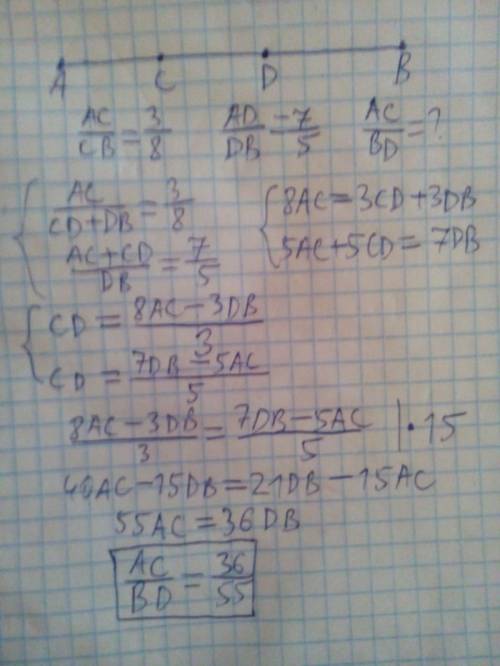 A C D B
AC/CB = 3/8 AD/DB = 7/5 AC/BD = ?
{ AC/(CD+DB) = 3/8 { 8AC = 3CD + 3DB
(AC+CD)/DB = 7/5 5AC + 5CD = 7DB
{ CD = (8AC - 3DB)/3
CD = (7DB - 5AC)/5
(8AC - 3DB)/3 = (7DB - 5AC)/5 | · 15
40AC - 15DB = 21DB - 15AC
55AC = 36DB
AC/BD = 36/55